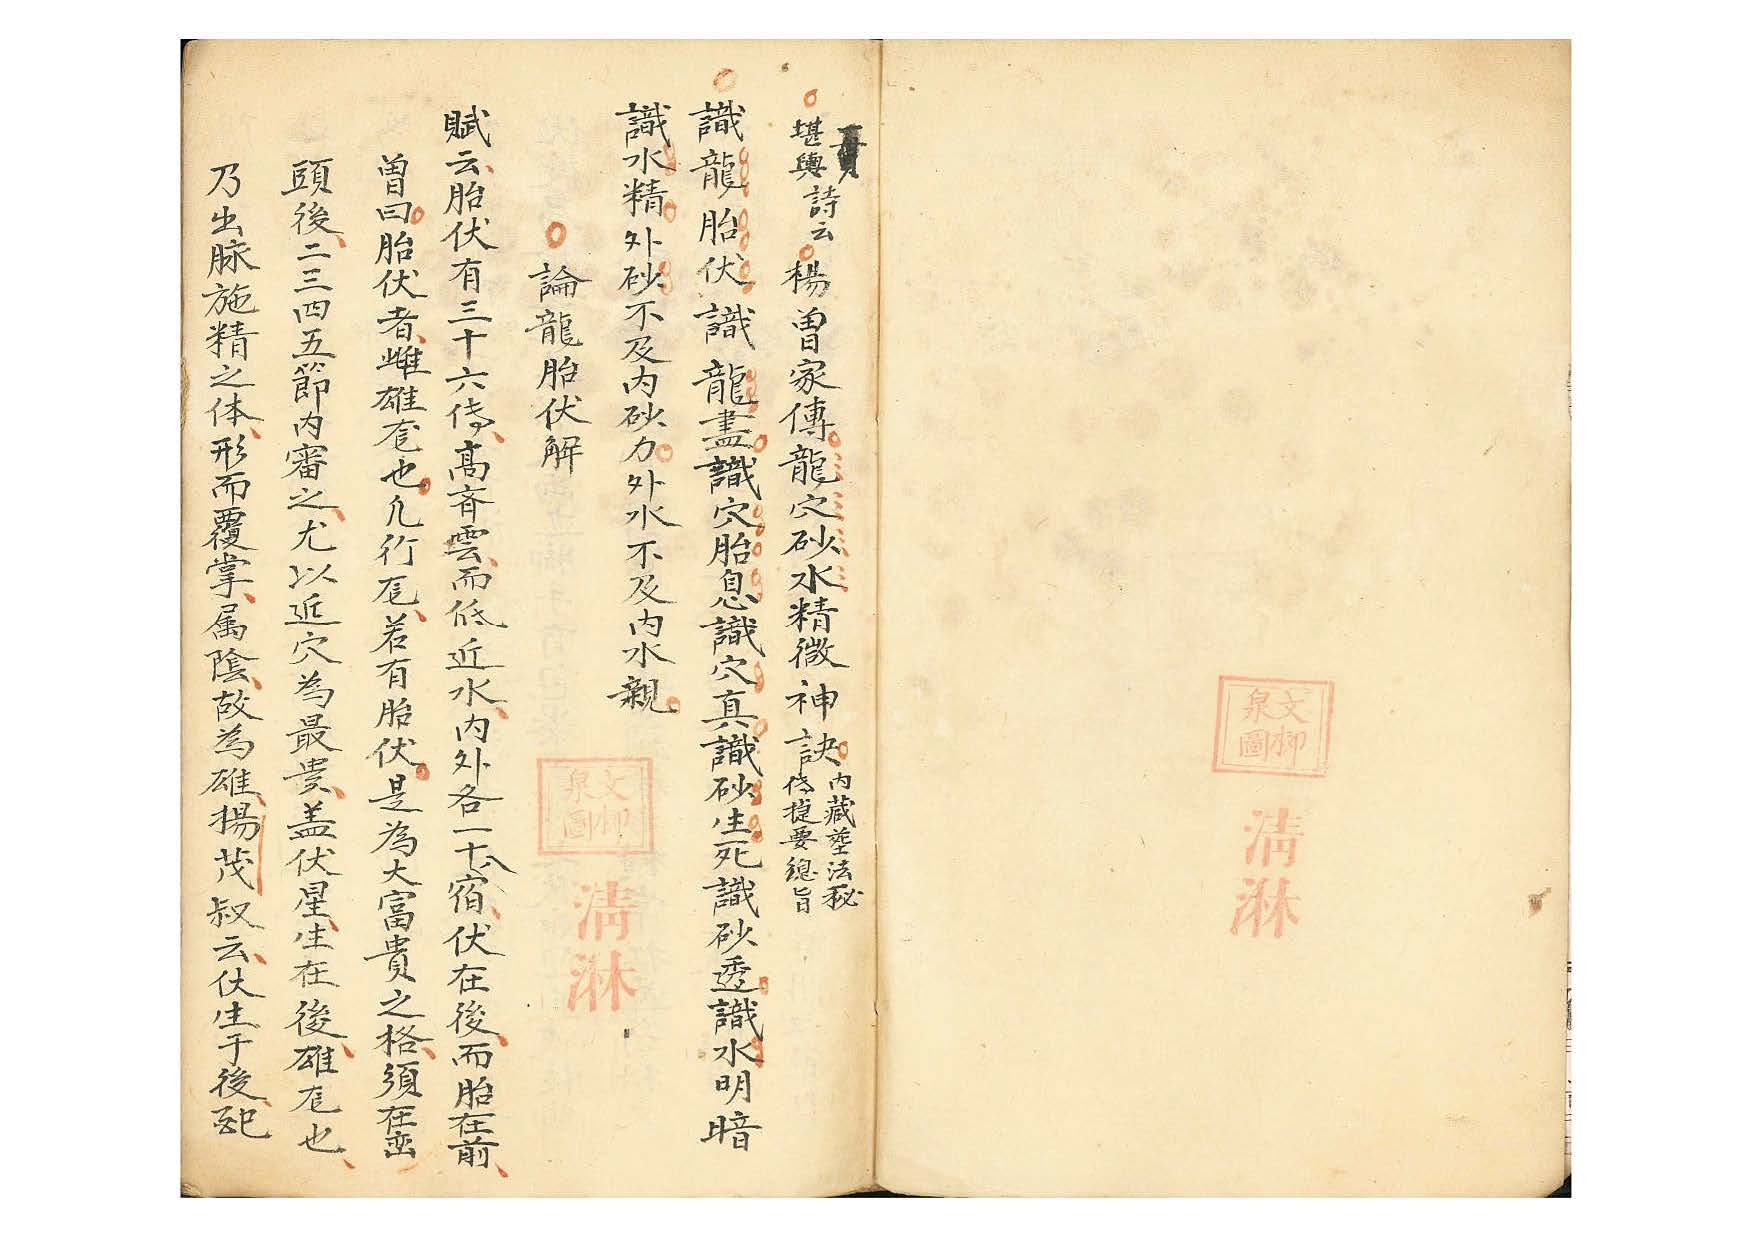 文柳泉圖
清淋
堪輿詩云楊曾家傳龍穴砂水精微神訣
内藏塟法秘
傳捷要總旨
識龍胎伏識龍盡識穴胎息識穴真識砂生死識砂透識水明暗
識水精外砂不及内砂力外水不及内水親
論龍胎伏解
賦云胎伏有三十六傳高齊雲而低近水内外各一十八宿伏在後而胎在前
曾曰胎伏者雌雄也凡行若有胎伏是為大富貴之格須在巒
頭後二三四五節内審之尤以近穴為最貴盖伏星生在後雄也
乃出脉施精之体形而覆掌属陰故為雄揚茂叔云伏生于後
文柳泉圖
清淋